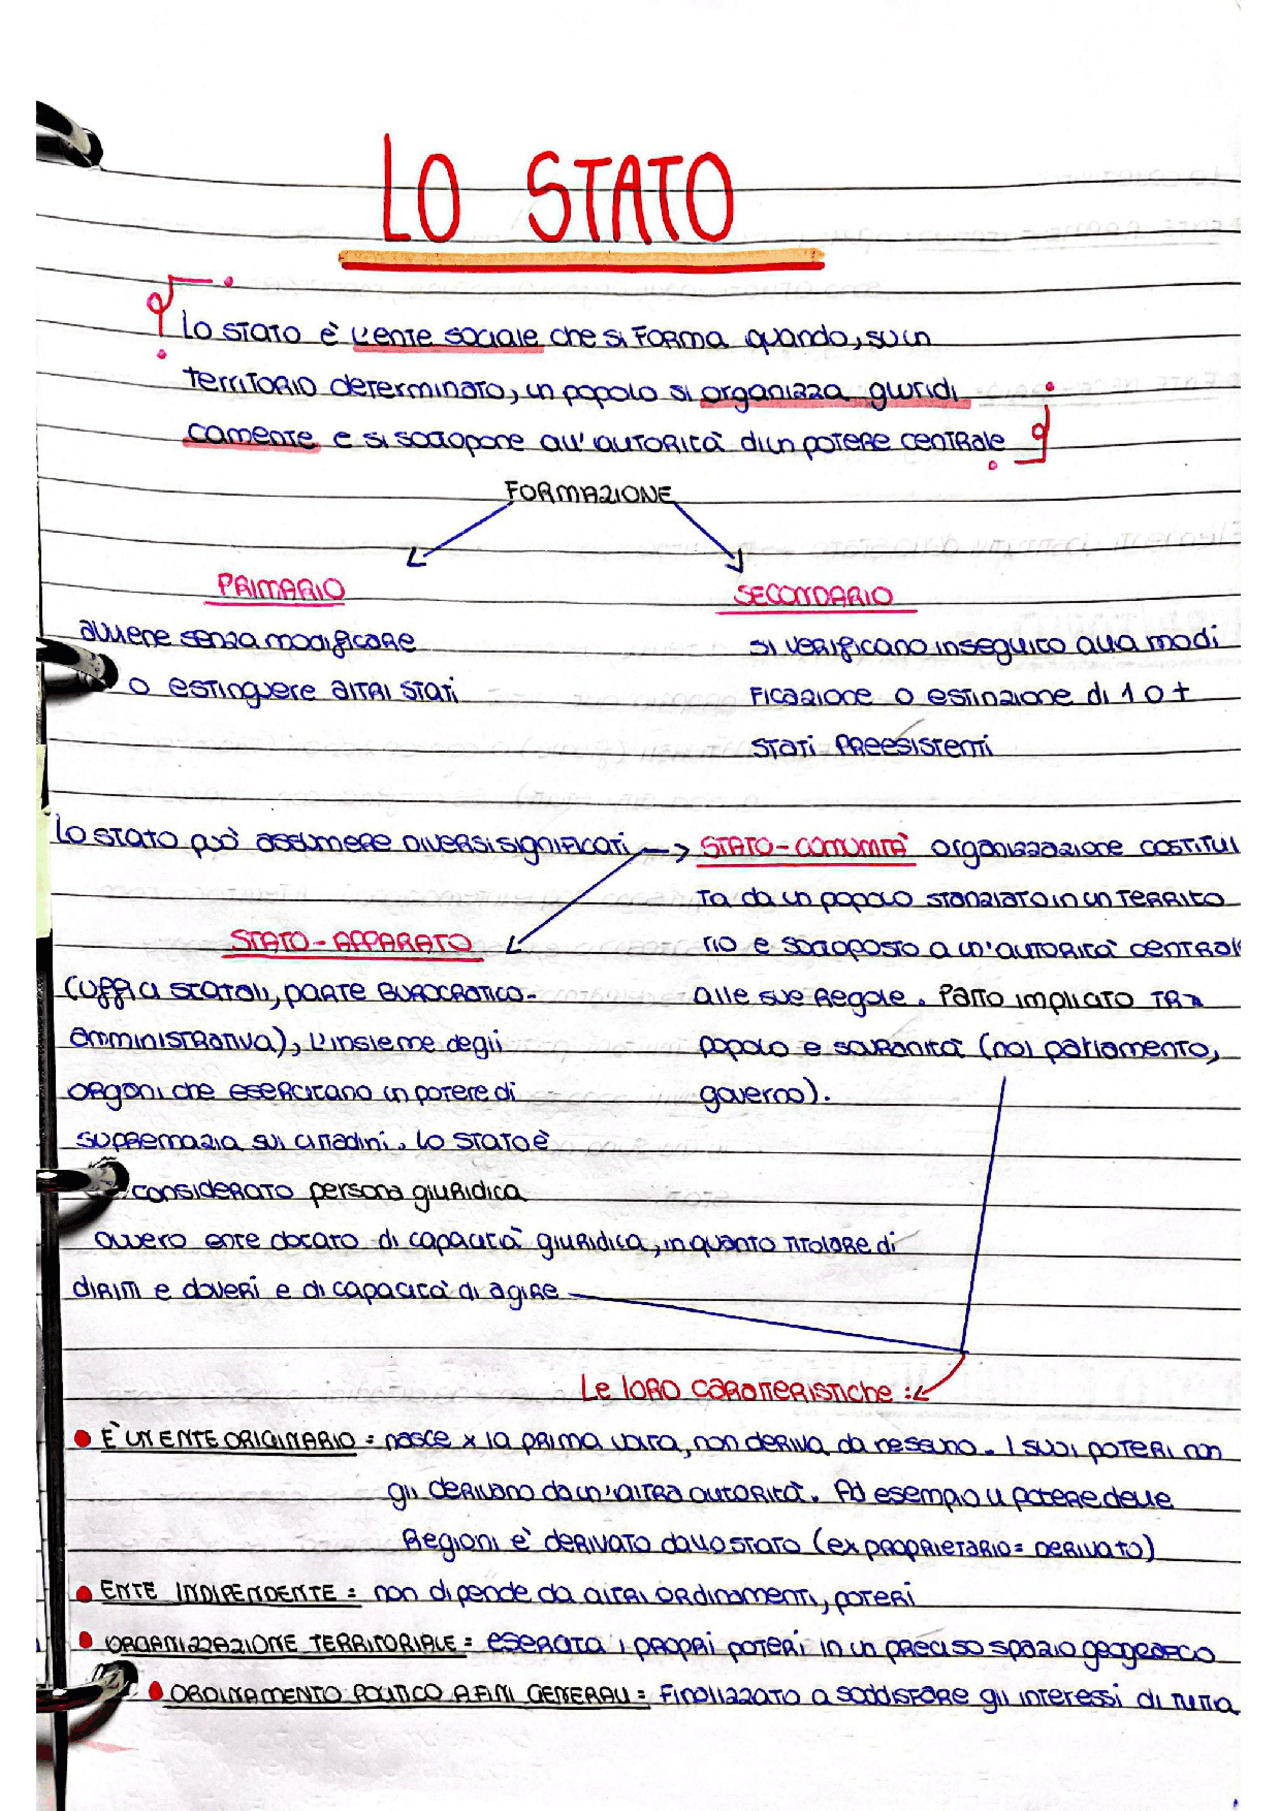 LO STATO
Lo stato è l'ente sociale che si forma quando, su un
territorio determinato, un popolo si organizza giuridi
camente e si sottopone all'autorità di un potere centrale
FORMAZIONE
PRIMARIO
avviene senza modificare
o estinguere altri stati
SECONDARIO
si verificano in seguito alla modi
ficazione o estinzione di 1 o +
stati preesistenti
Lo stato può assumere diversi significati → STATO-COMUNITÀ organizzazione costitui
ta da un popolo stanziato in un territo
rio e sottoposto a un'autorità central
alle sue regole. Patto implicito tra
popolo e sovranità (noi parlamento,
governo).
STATO-APPARATO
(uffici statali, parte burocratico-
amministrativa), l'insieme degli
organi che esercitano un potere di
supremazia sui cittadini. Lo stato è
considerato persona giuridica
ovvero ente dotato di capacità giuridica, in quanto titolare di
diritti e doveri e di capacità di agire
Le loro caratteristiche:
• È UN ENTE ORIGINARIO = nasce x la prima volta, non deriva da nessuno. I suoi poteri non
gli derivano da un'altra autorità. Ad esempio il potere delle
Regioni è derivato dallo stato (ex proprietario = derivato)
• ENTE INDIPENDENTE = non dipende da altri ordinamenti, poteri
• ORGANIZZAZIONE TERRITORIALE = esercita i propri poteri in un preciso spazio geografico
• ORDINAMENTO POLITICO A FINI GENERALI = finalizzato a soddisfare gli interessi di tutta